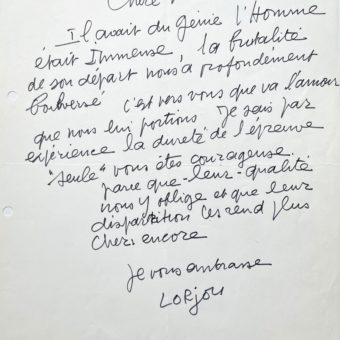 Chère
Il avait du génie l'Homme
était Immense, la brutalité
de son départ nous a profondément
boulversé c'est vers vous que va l'amour
que nous lui portions. Je sais par
expérience la dureté de l'épreuve
"seule" vous êtes courageuse.
parce que leur qualité
nous y oblige et que leur
disparition les rend plus
chers encore
Je vous embrasse
LORJOU